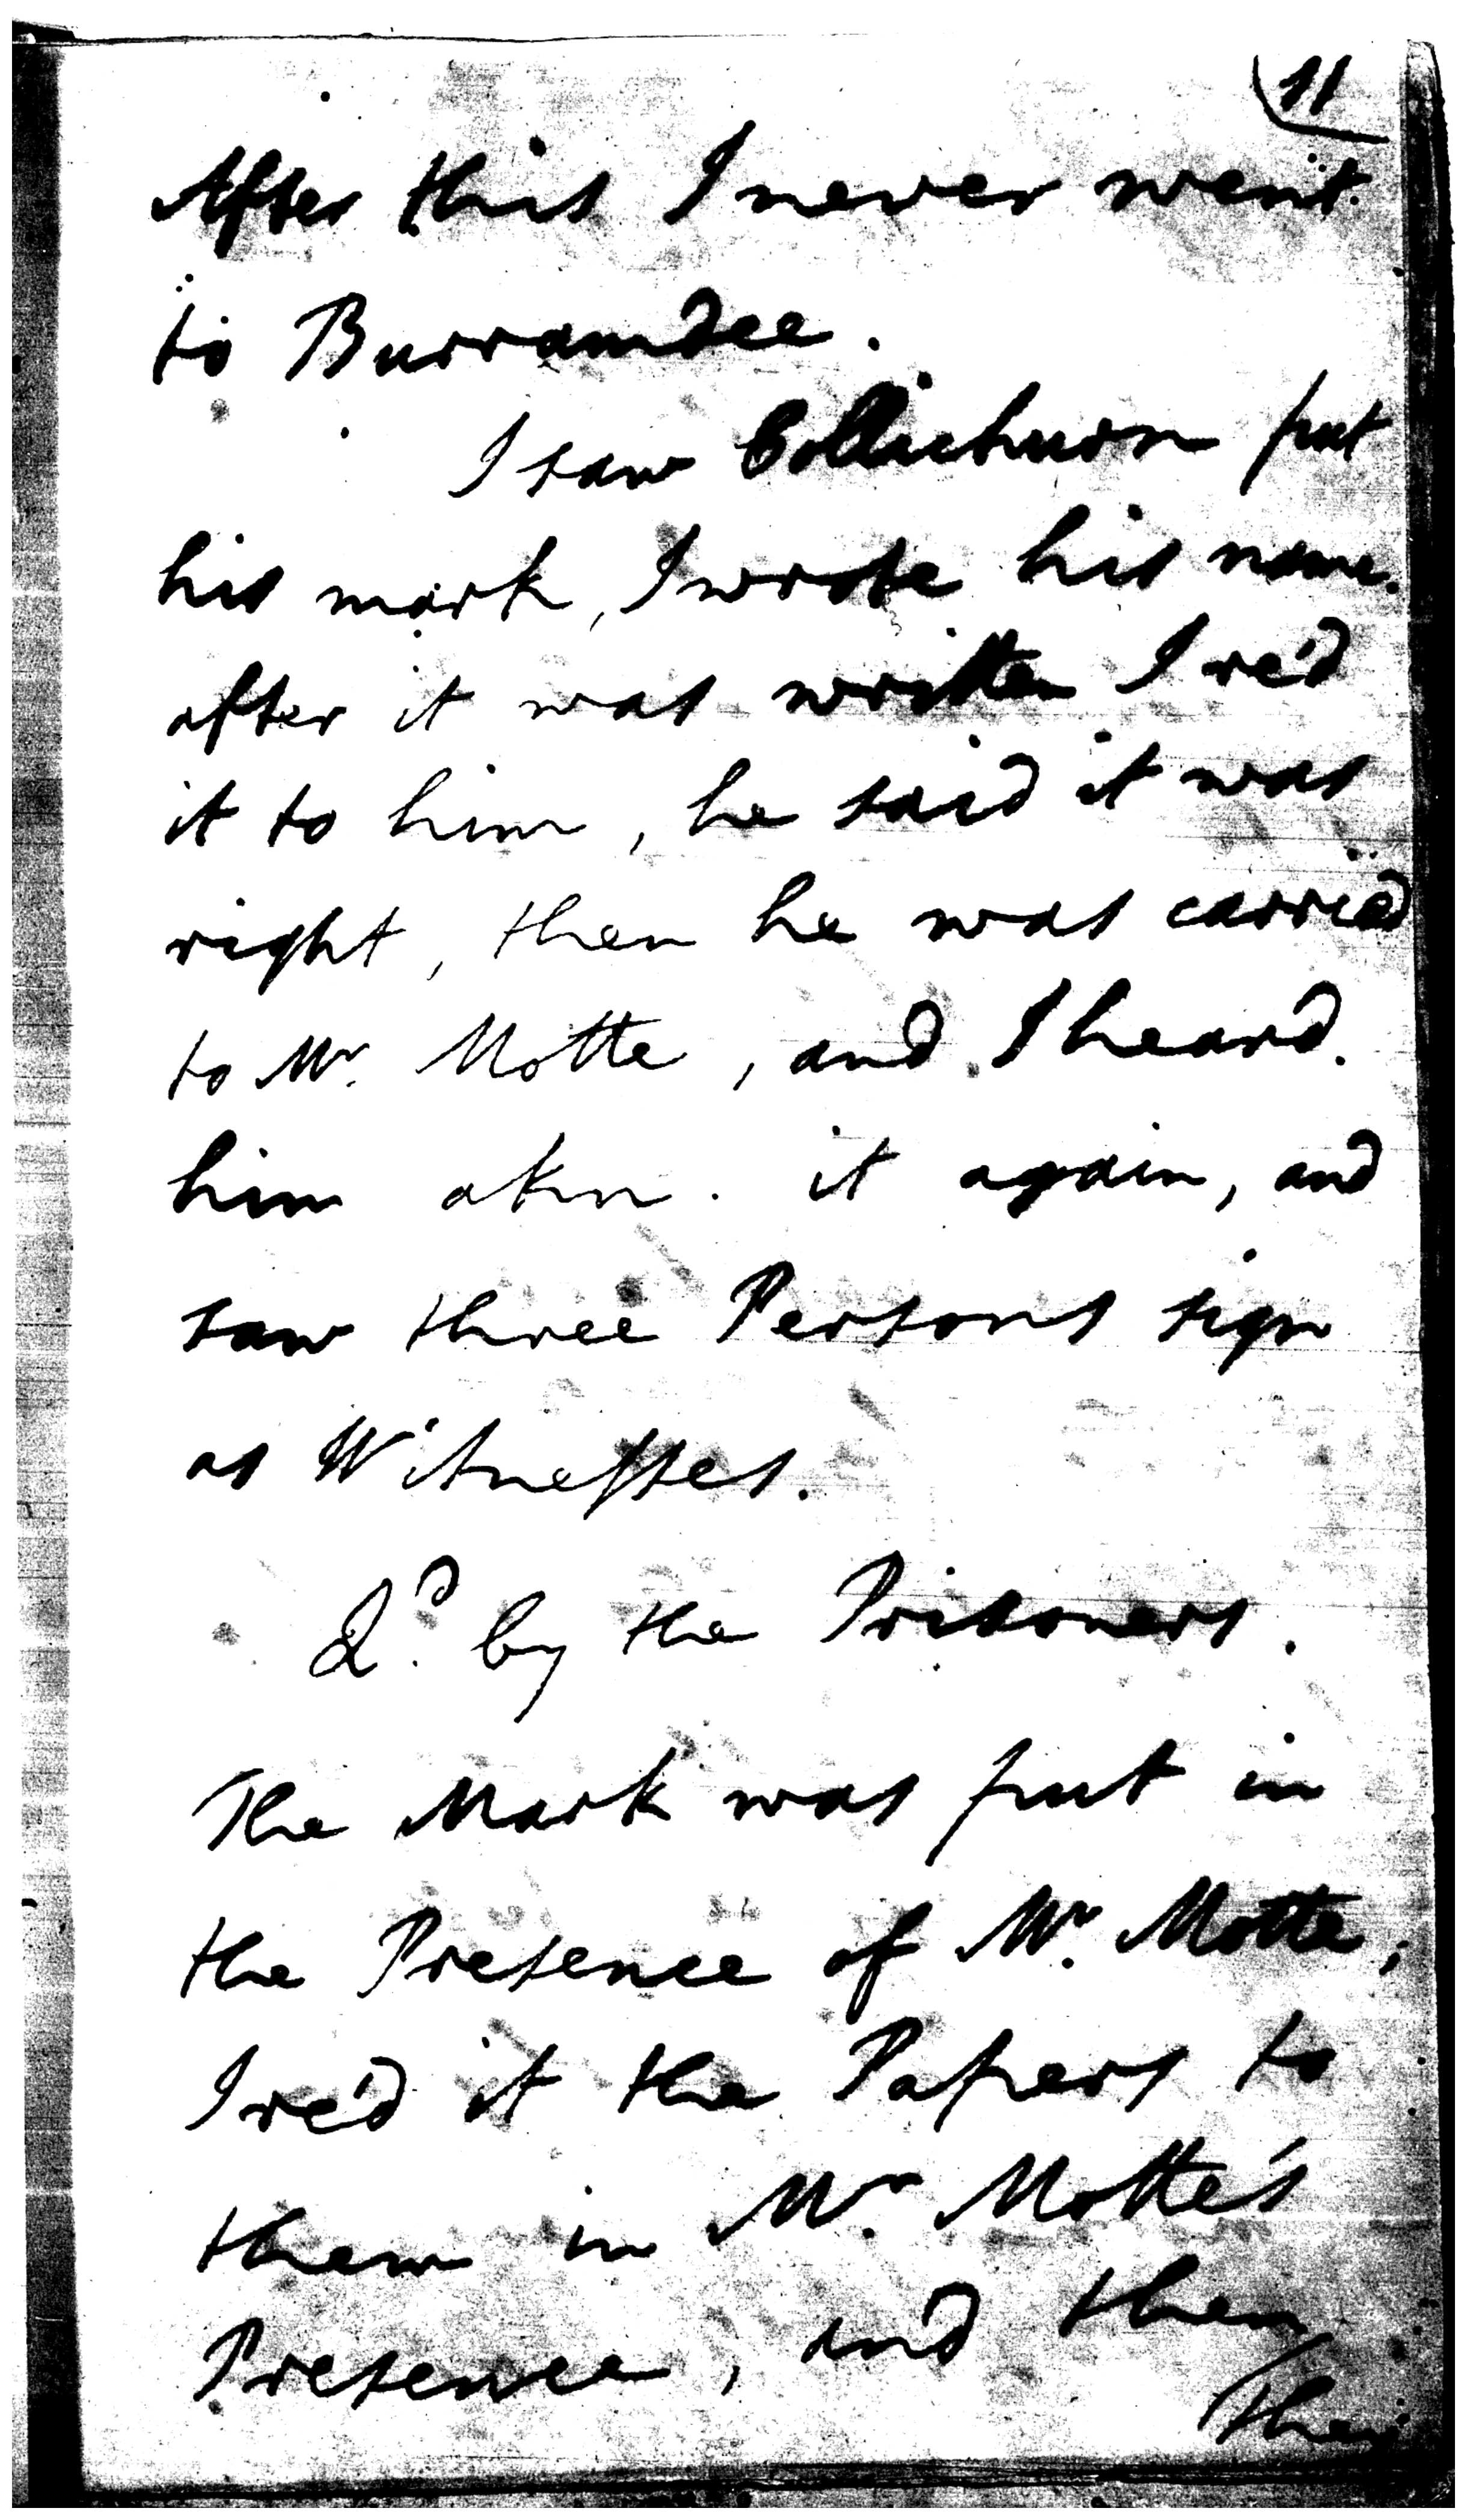 11
After this I never went
to Burramdee.
I saw Collichurn put
his mark, I wrote his name.
after it was written I re'd
it to him, he said it was
right, then he was carried
to Mr. Motte, and I heard.
him akn. it again, and
saw three Persons sign
as Witnesses.
Qd. by the Prisoners.
The Mark was put in
the Presence of Mr. Motte;
I re'd it the Papers to
them in Mr. Motte's
Presence, and then
They